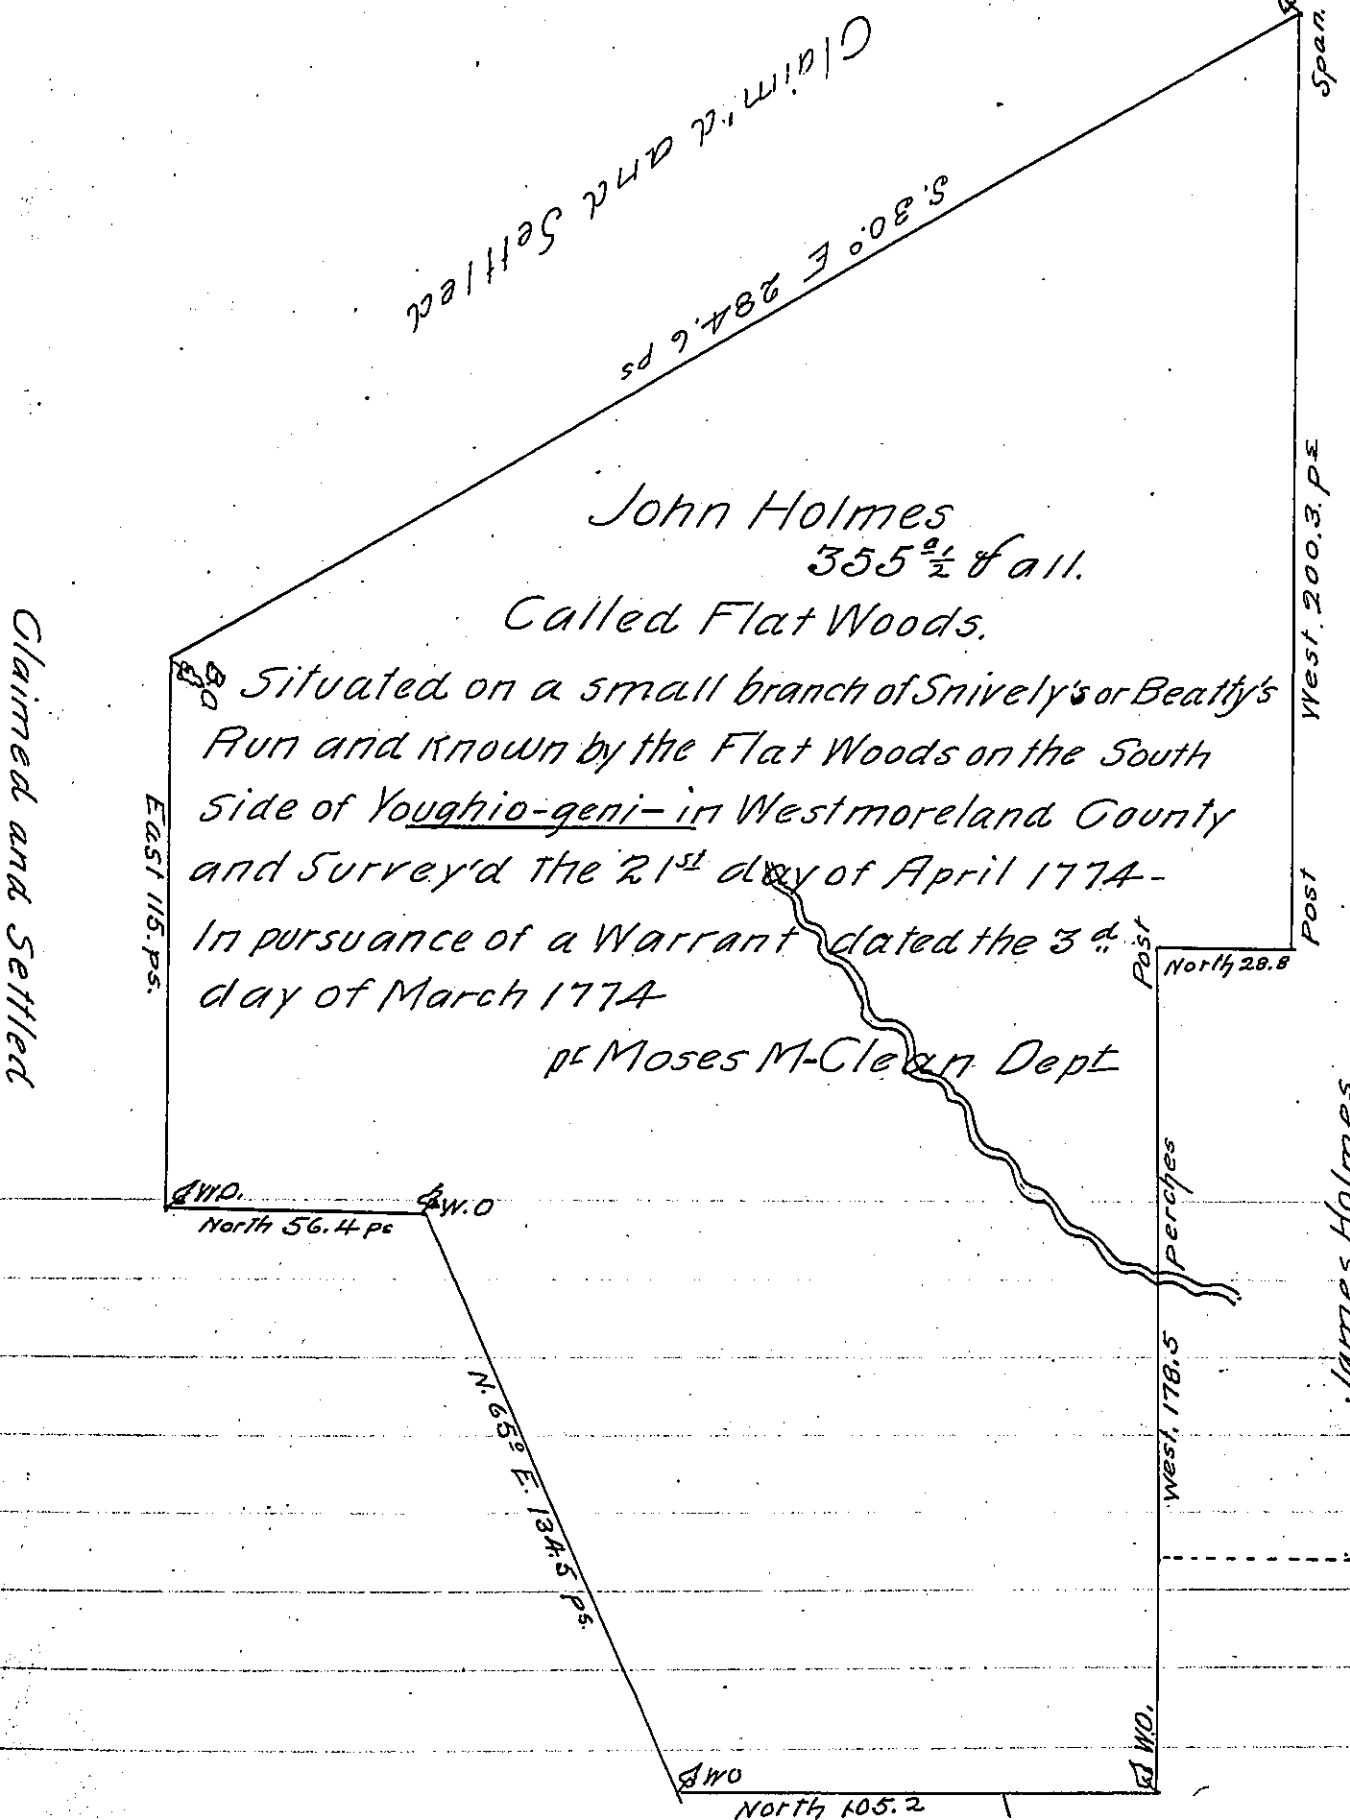 Claim'd and Settled
S. 30.° E 284.6 ps
Span.
West. 200.3. ps
John Holmes
355 a ½ & all.
Called Flat Woods.
B.O
Situated on a small branch of Snively's or Beatty's
Run and known by the Flat Woods on the South
Side of Youghio-geni- in Westmoreland County
and Survey'd the 21st day of April 1774-
In pursuance of a Warrant dated the 3d
day of March 1774
pr Moses M-Clean Dept
Claimed and Settled
East 115. ps.
Post
North 28.8
Post
W.O.
North 56.4 ps
W.O
N. 65° E. 134.5 ps.
West. 178.5 perches
James Holmes
WO
North 105.2
W.O.